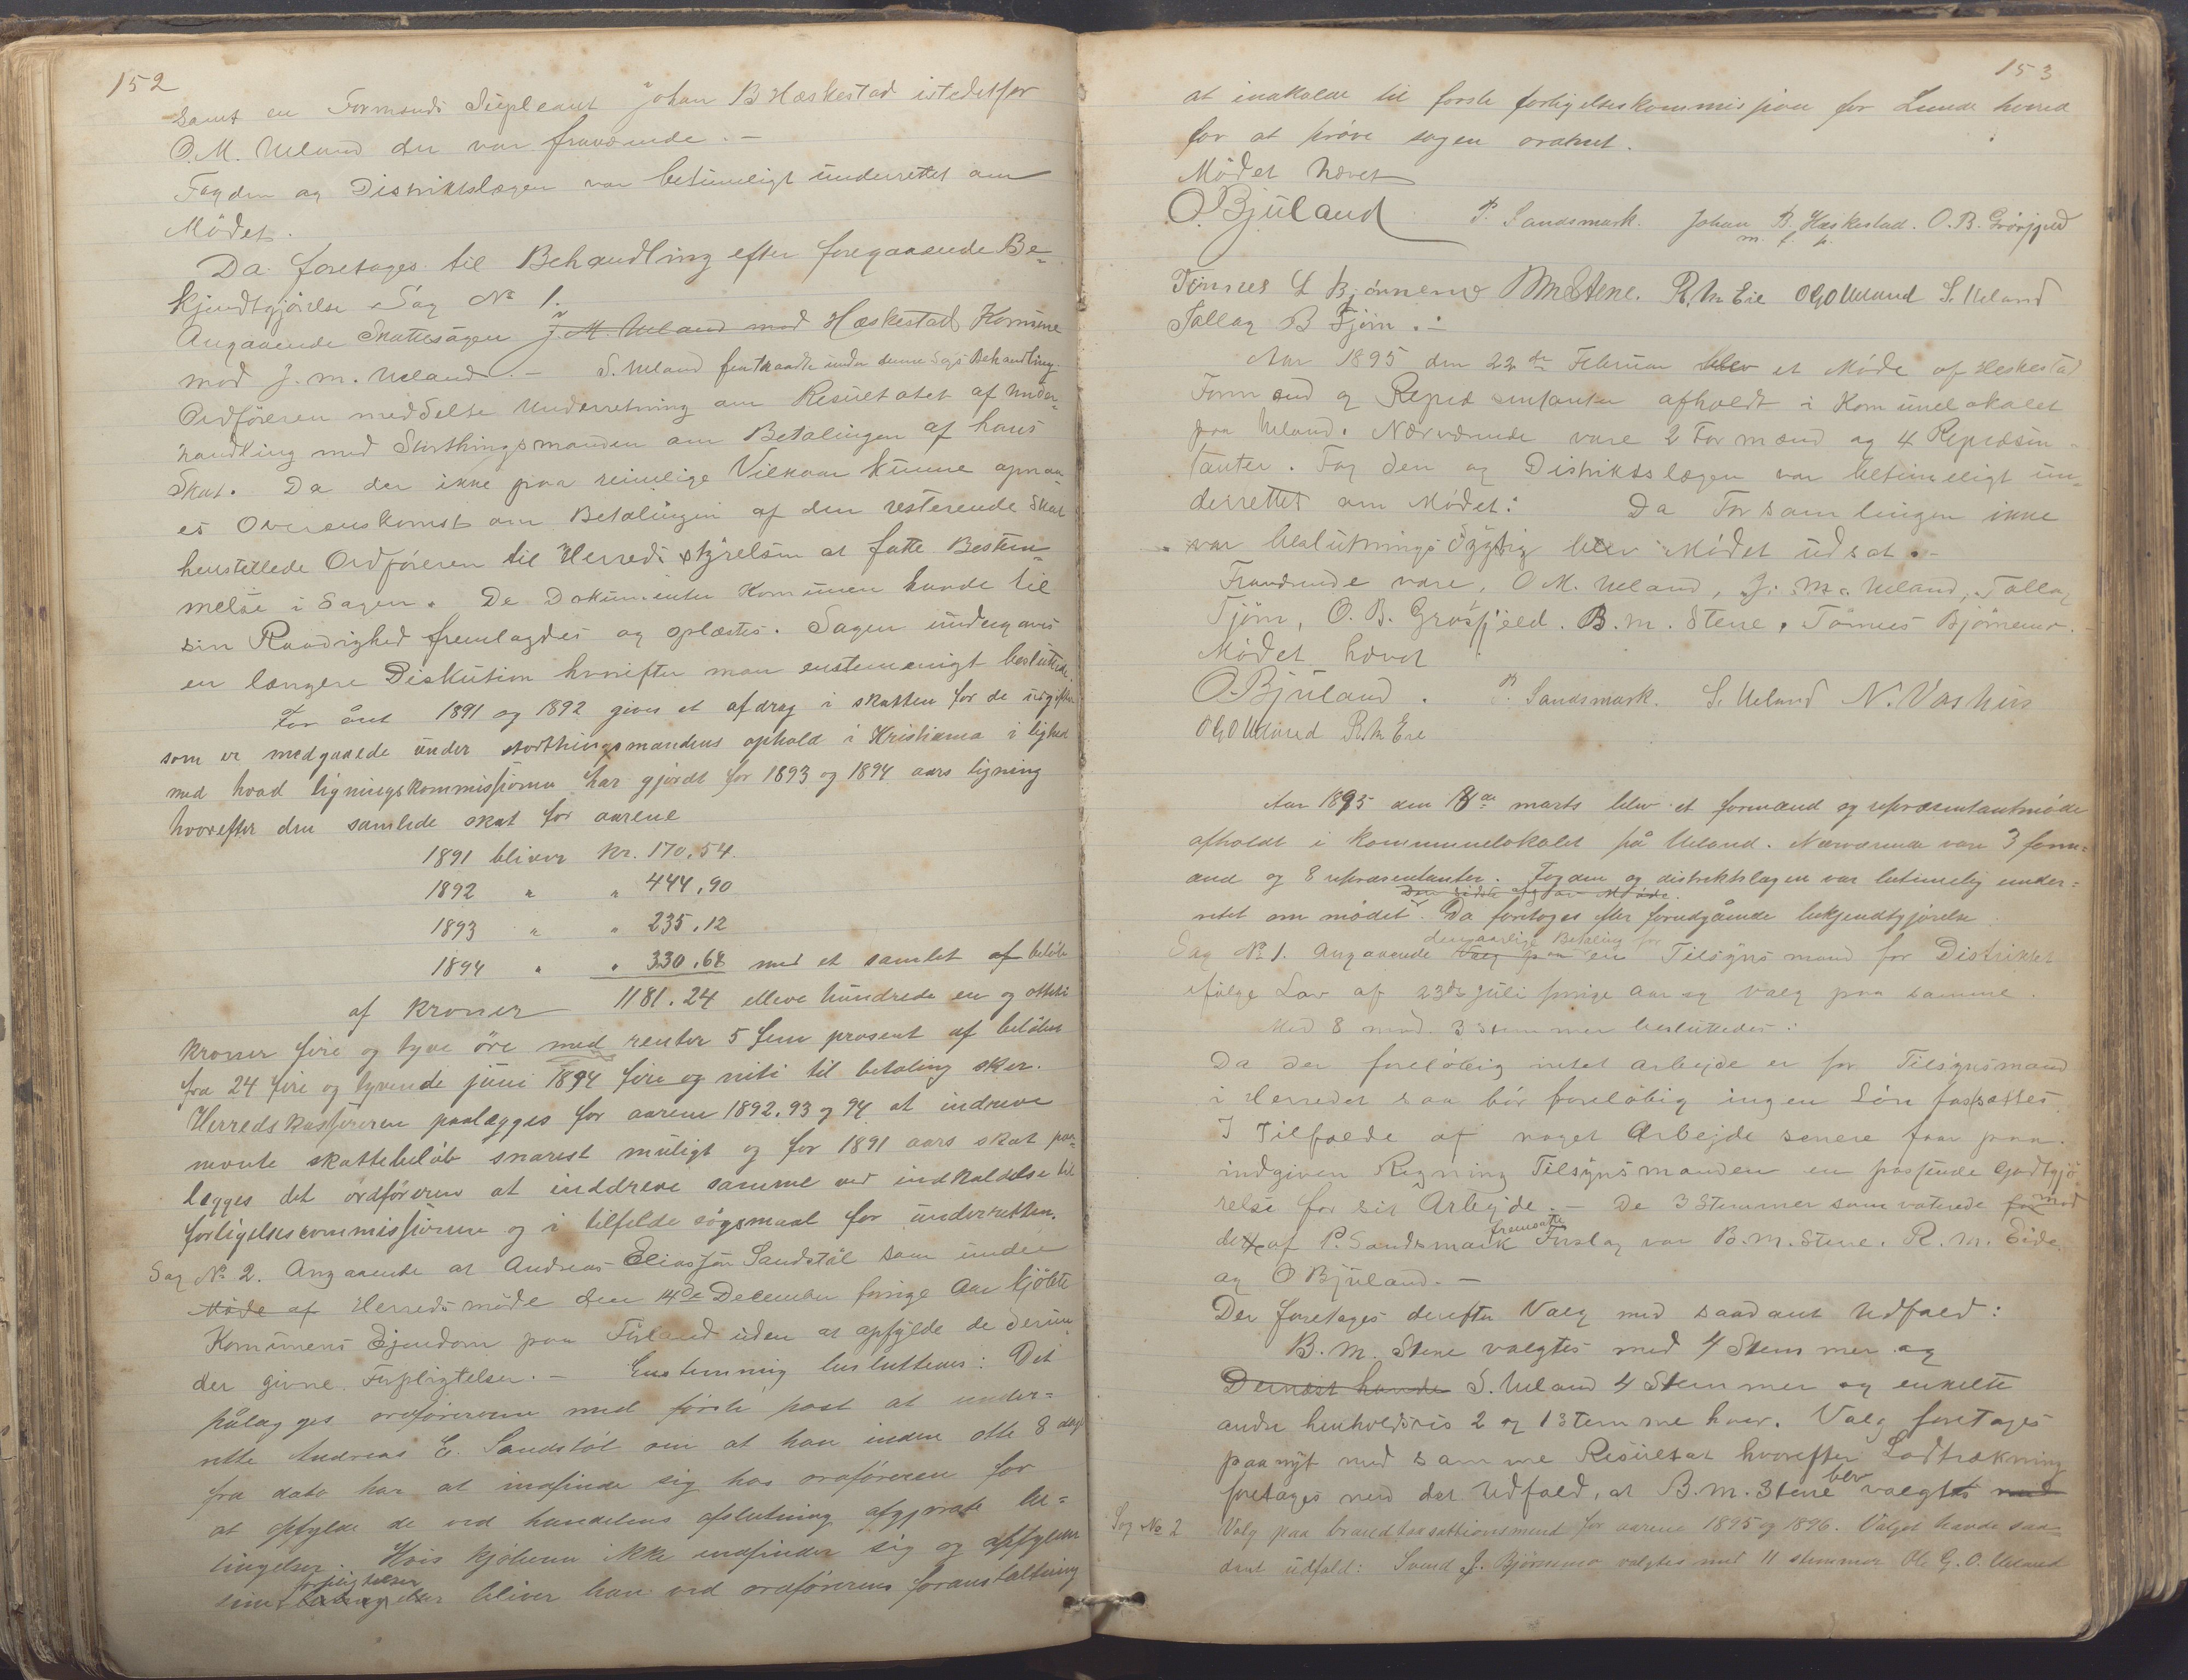 152
samt en Formands Supleant Johan B Hæskestad istedetfor
O. M. Ueland der var fraværende. –
Fogden og Distriktslægen var betimeligt underrettet om
Mødet.
Da foretoges til Behandling efter foregaaende Be-
kjendtgjørelse Sag No 1.
Angaaende Skattesagen J. M. Ueland mod Hæskestad Komune
mod J. M. Ueland. – S. Ueland fratraadte under denne Sags Behandling
Ordføreren meddelte Underretning om Resultatet af Under-
handling med Storthingsmanden om Betalingen af hans
Skat. Da der ikke paa rimelige Vilkaar kunne opnaa-
es Overenskomst om Betalingen af den resterende Skat
henstillede Ordføreren til Herredsstyrelsen at fatte Bestem-
melse i Sagen. De Dokumenter Komunen havde til
sin Raadighed fremlagdes og oplæstes. Sagen undergaves
en længere Diskution hvorefter man enstemmigt besluttede:
For året 1891 og 1892 gives et afdrag i skatten for de udgifter
som er medgaaede under storthingsmandens ophold i Kristiania i lighed
med hvad ligningskommissionen har gjordt for 1893 og 1894 aars ligning
hvorefter den samlede skat for aarene
1891 bliver Kr. 170,54.
1892 " " 444,90
1893 " " 235,12
1894 " " 330,68 med et samlet af beløb
af kroner 1181.24 elleve hundrede en og otteti
kroner fire og tyve öre med renter 5 fem prosent af beløbet
fra 24 fire og tyvende juni 1894 fire og niti til betaling sker.
Herredskassereren paalægges for aarene 1892.93 og 94 at indreve
nevnte skattebeløb snarest muligt og for 1891 aars skat paa-
lægges det ordføreren at inddreve samme ved indkaldelse til
forligelsescommissionen og i tilfelde søgsmaal for underretten.
Sag No 2. Angaaende at Andreas Eliassøn Sandstøl som under
Møde af Herredsmøde den 14de December forrige Aar kjøbte
Komunens Ejendom paa Füland uden at opfylde de derun-
der givne Forpligtelser. – Enstemmig besluttedes: Det
pålægges ordføreren med første post at under=
rette Andreas E. Sandstøl om at han inden otte 8 dage
fra dato har at indfinde sig hos ordføreren for
at opfylde de ved handelens afslutning afgjorte be=
tingelser. Hvis kjøberen ikke indfinder sig og opfylder
forpligtelser
sine betingelser bliver han ved ordførerens foranstaltning
153
at indkalde til første forligelseskommission for Lunde herred
for at prøve sagen ordnet.
Mødet hævet
O Bjuland P. Sandsmark. Johan B. Hæskestad. O. B. Grøsfjeld
m. f. p.
Tønnes L Bjørnemo B M Stene. R. M Eie O G O Ueland S. Ueland
Tollag B Tjørn. –
Aar 1895 den 22de Februar blev et Møde af Heskestad
Formænd og Repræsentanter afholdt i Komunelokalet
paa Ueland. Nærværende vare 2 Formænd og 4 Repræsen-
tanter. Fogden og Distriktslægen var betimeligt un-
derrettet om Mødet: Da Forsamlingen ikke
var beslutningsdygtig blev Mødet udsat. –
Fraværende vare, O M. Ueland, J. M. Ueland, Tollag
Tjørn, O. B. Grøsfjeld. B. M. Stene, Tønnes Bjørnemo.
Mødet hævet
O Bjuland. P. Sandsmark. S. Ueland N. Vashus
O G O Ueland R. M Eie
Aar 1895 den 18de marts blev et formænd og repræsentantmøde
afholdt i kommunelokalet på Ueland. Nærværende vare 3 form=
ænd og 8 repræsentanter. Fogden og distriktslægen var betimelig under=
rettet om mødet. Da foretoges efter forudgående bekjendtgjørelse
den aarlige Betaling for
Sag No 1. Angaaende Valg paa en Tilsynsmand for Distriktet
ifølge Lov af 23de Juli forrige Aar og Valg paa samme.
Med 8 mod 3 Stemmer besluttedes:
Da der foreløbig intet Arbejde er for Tilsynsmand
i Herredet saa bør foreløbig ingen Løn fastsættes
I Tilfælde af noget Arbejde senere faar paa
indgiven Regning Tilsynsmanden en passende Godtgjø-
relse for sit Arbejde. – De 3 Stemmer som voterede for mod
fremsatte
dette af P. Sandsmark Forslag var B. M. Stene. R. M. Eide
og O Bjuland. –
Der foretoges derefter Valg med saadant Udfald:
B. M. Stene valgtes med 4 Stemmer og
Dernæst havde S. Ueland 4 Stemmer og enkelte
andre henholdsvis 2 og 1 Stemme hver. Valg foretoges
paanyt med samme Resultat hvorefter Lodtrækning
foretoges med det Udfald, at B. M. Stene blev valgt med
Sag No 2 Valg paa brandtaxsattionsmend for aarene 1895 og 1896. Valget havde saa-
dant udfald: Svend J. Bjørnemo valgtes med 11 stemmer Ole G. O. Ueland